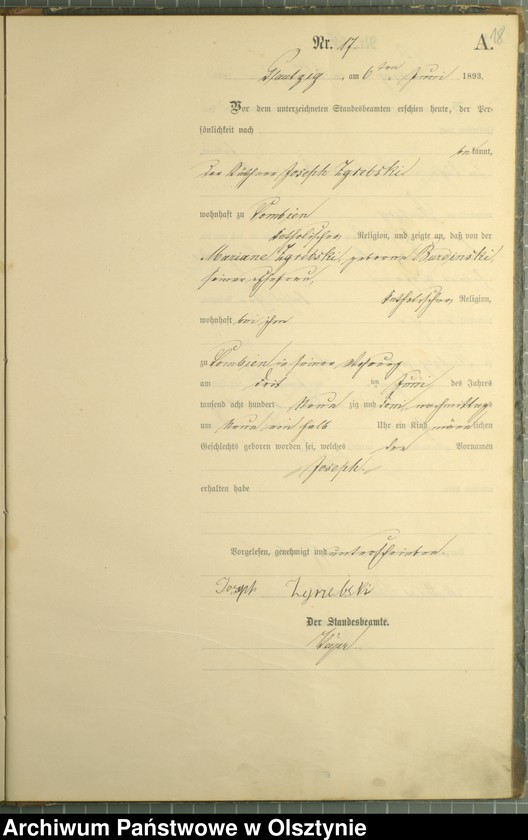 Nr. 17.
A.
18
am 6ten Juni 1893.
Vor dem unterzeichneten Standesbeamten erschien heute, der Per-
sönlichkeit nach
bekannt,
der Käthner Joseph
wohnhaft zu Dombien
katholischer Religion, und zeigte an, daß von der
Mariane geborene
seiner Ehefrau,
katholischer Religion,
wohnhaft bei ihm
zu Dombien in seiner Wohnung
am drit ten Juni des Jahres
tausend acht hundert Neun zig und drei, nachmittags
um Neun ein halb Uhr ein Kind männlichen
Geschlechts geboren worden sei, welches den Vornamen
Joseph
erhalten habe
Vorgelesen, genehmigt und unterschrieben
Joseph
Der Standesbeamte.
Archiwum Państwowe w Olsztynie